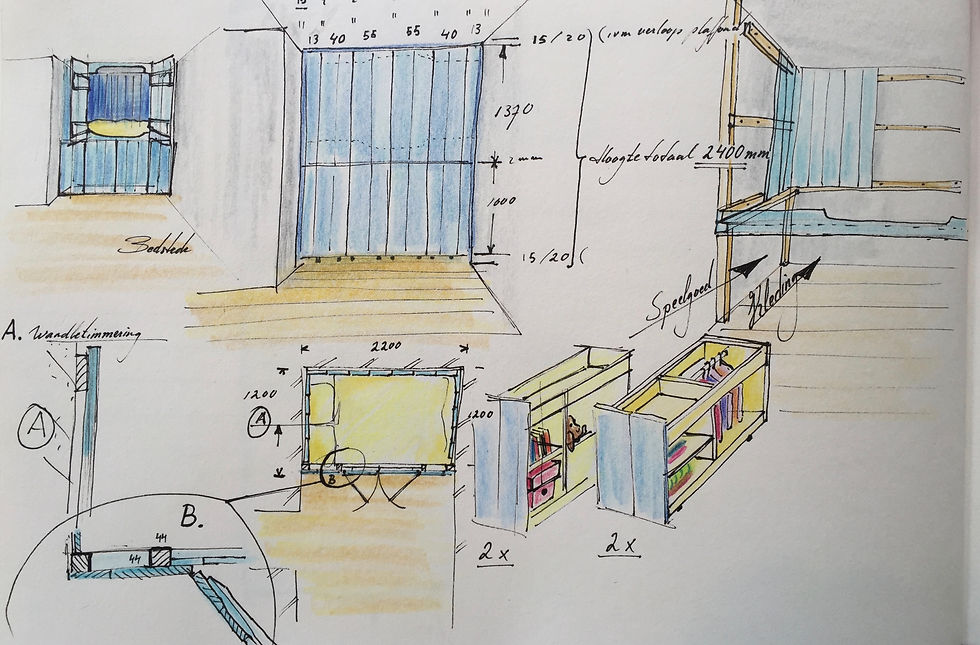 13 40 55 55 40 13
15/20 (ivm verloop plafond
1370
2 mm
Hoogte totaal 2400mm
1000
15/20 (
Bedstede
Speelgoed
Kleding
A. Wandbetimmering
2200
1200
1200
A
A
B
B.
44
44
2x
2x